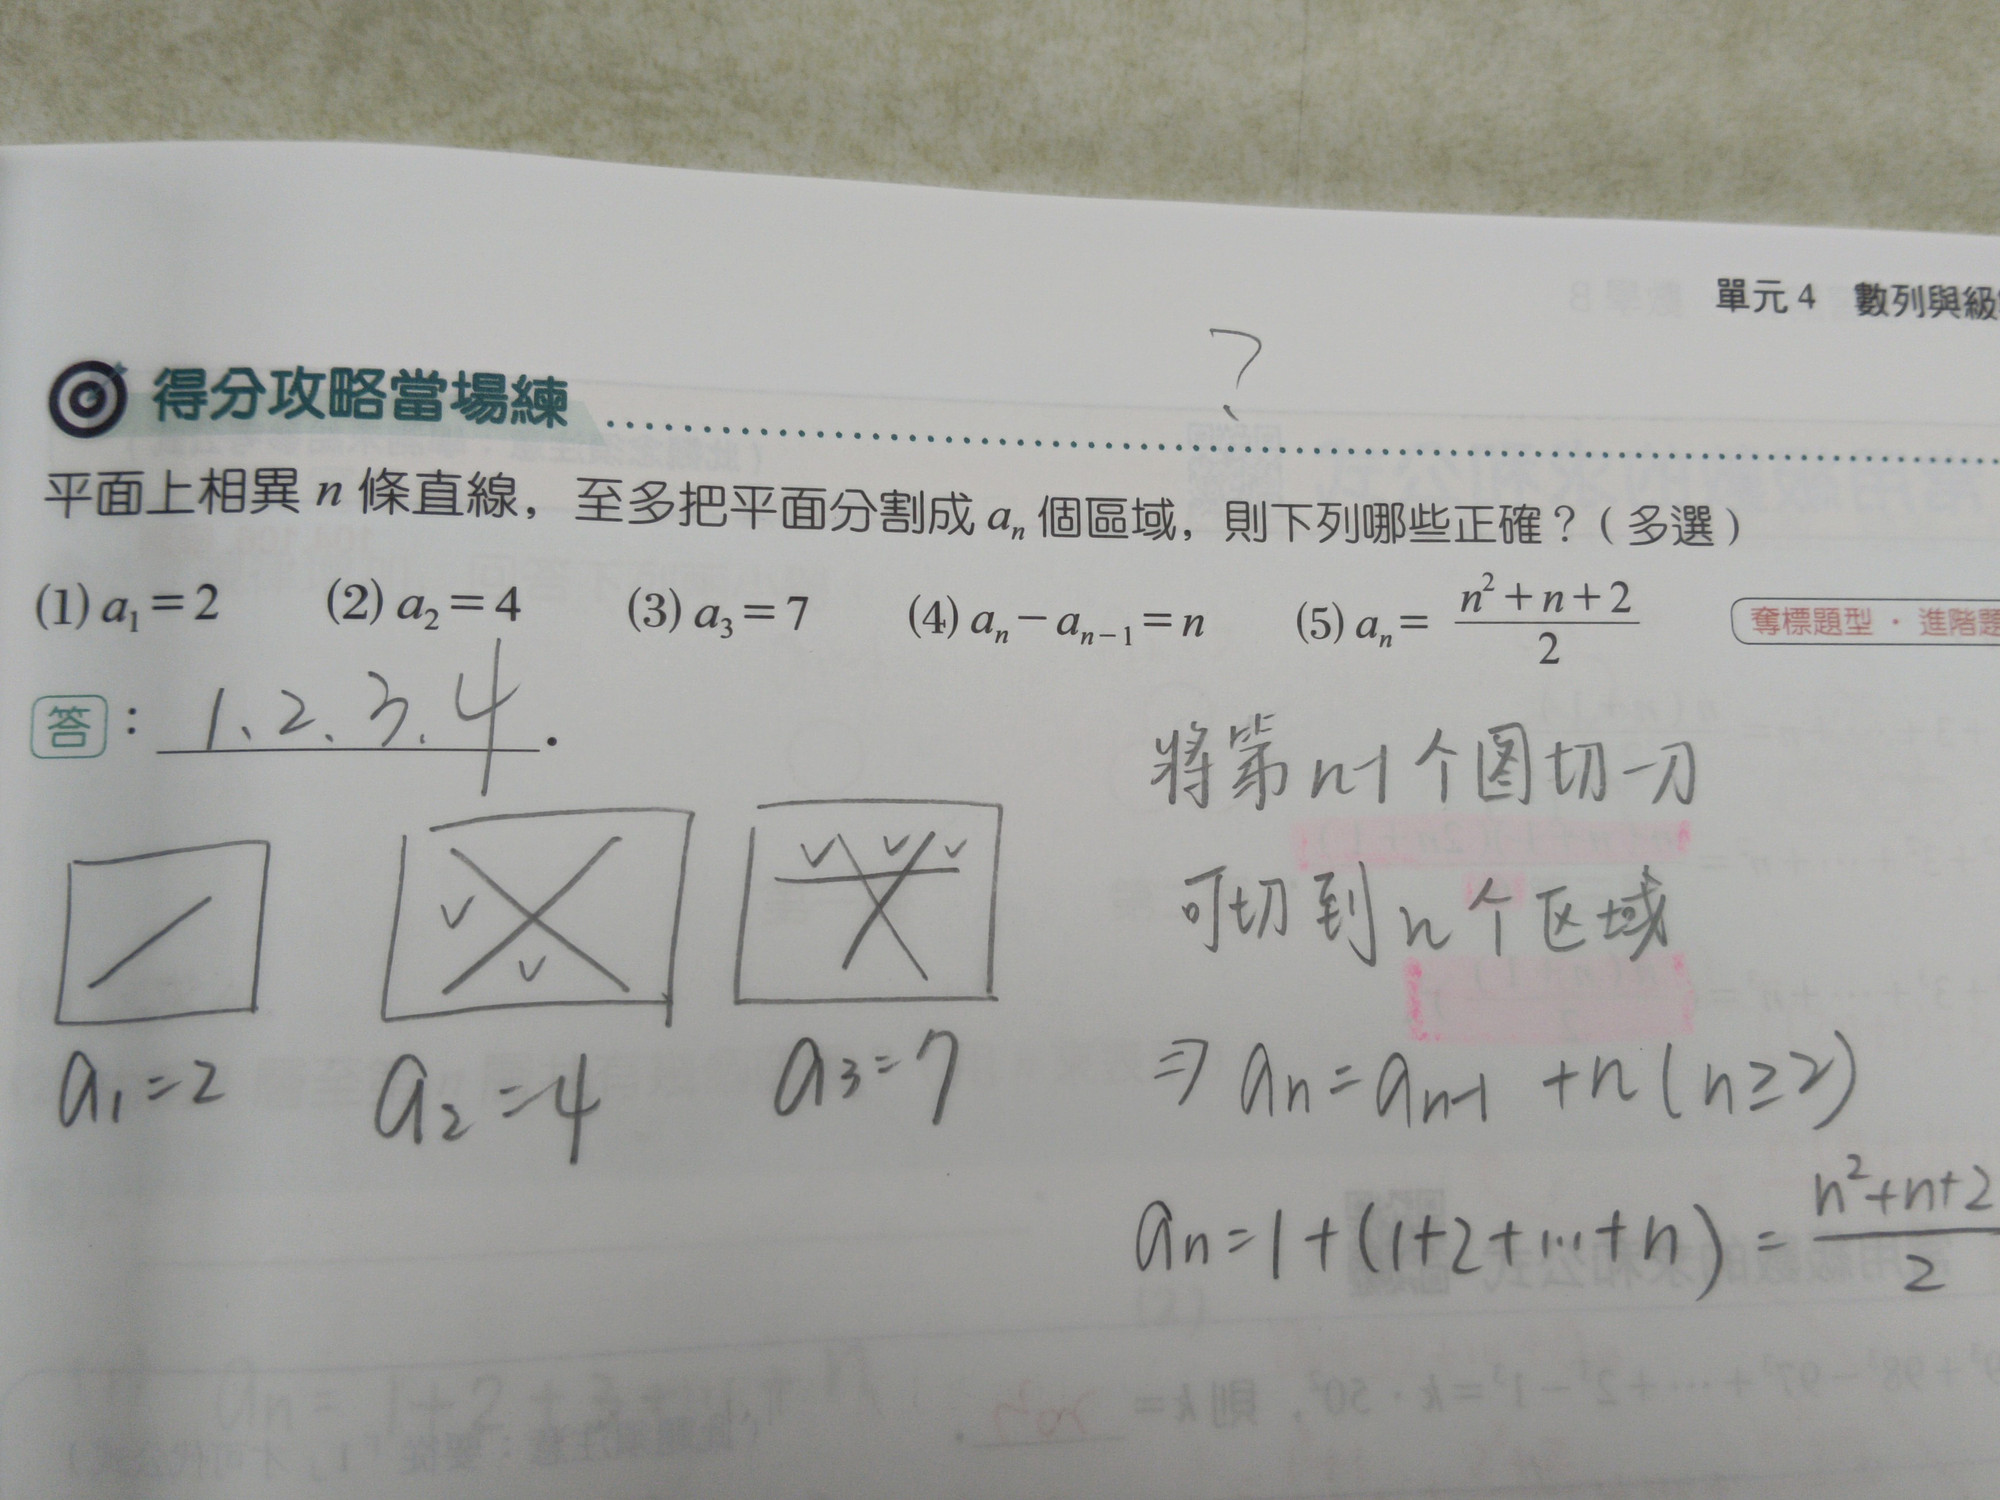 單元 4 數列與級
?
得分攻略當場練
平面上相異 n 條直線，至多把平面分割成 aₙ 個區域，則下列哪些正確？（多選）
(1) a₁ = 2 (2) a₂ = 4 (3) a₃ = 7 (4) aₙ − aₙ₋₁ = n (5) aₙ = (n² + n + 2)/2 奪標題型・進階題
答：1、2、3、4.
將第 n-1 个图切一刀
可切到 n 个区域
⇒ aₙ = aₙ₋₁ + n (n ≥ 2)
a₁ = 2 a₂ = 4 a₃ = 7
aₙ = 1 + (1+2+…+n) = (n²+n+2)/2